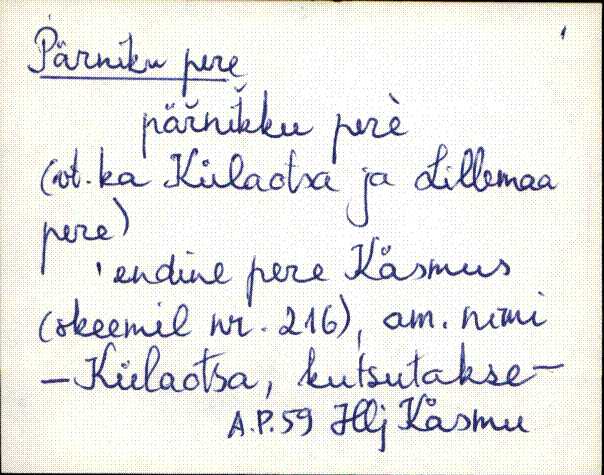 Pärniku pere
pär̆nĭkku perè
(vt. ka Külaotsa ja Lillemaa
pere)
'endine pere Käsmus
(skeemil nr. 216), am. nimi
— Külaotsa, kutsutakse —
A.P. 59 Hlj Käsmu